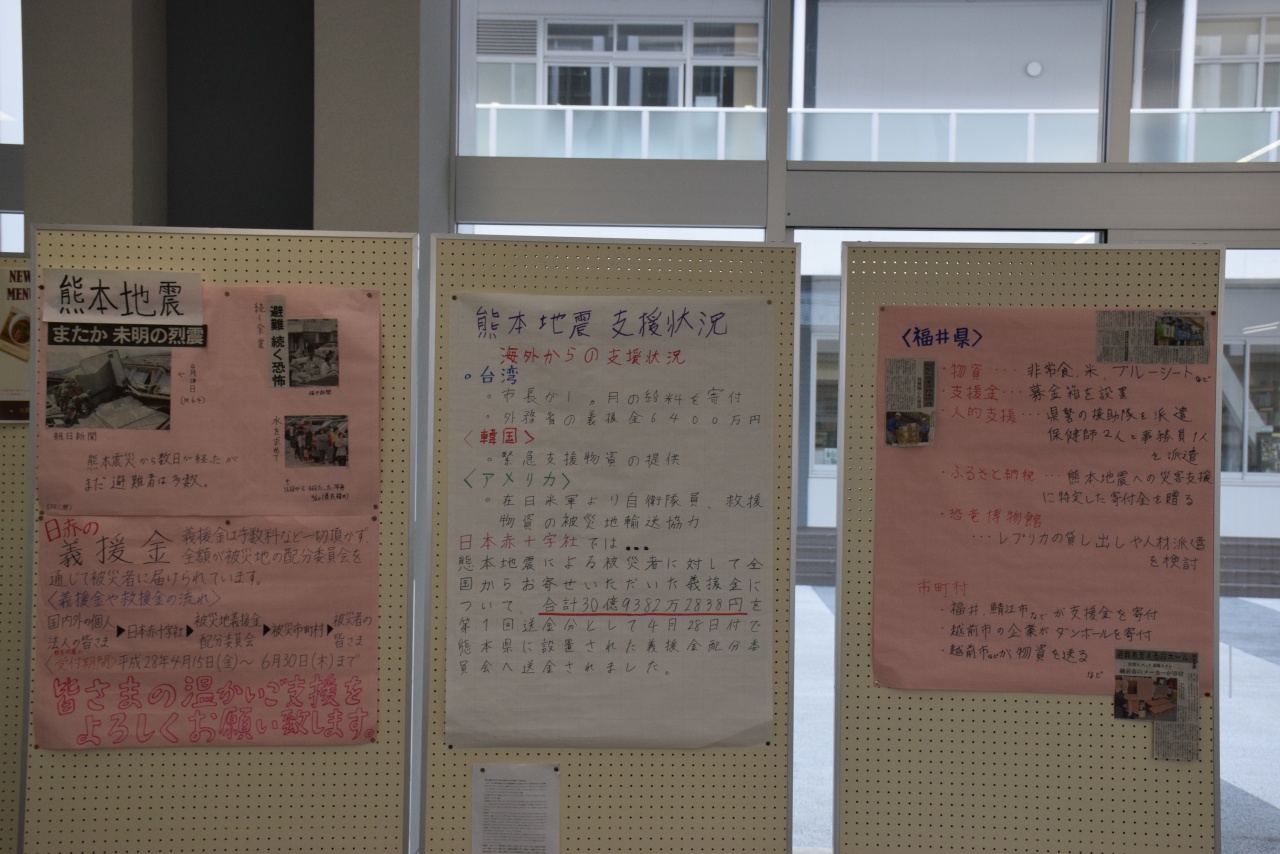 NEW
MENU
熊本地震
またか 未明の烈震
朝日新聞
続く余震
避難 続く恐怖
福井新聞
水を求めて
熊本震災から数日が経たが
まだ避難者は多数。
日赤の
義援金
義援金は手数料など一切頂かず
全額が被災地の配分委員会を
通じて被災者に届けられています。
〈義援金や救援金の流れ〉
国内外の個人
法人の皆さま
▶日本赤十字社▶
被災地義援金
配分委員会
▶被災市町村▶
被災者の
皆さま
〈受付期間〉平成28年4月15日(金)～6月30日(木)まで
皆さまの温かいご支援を
よろしくお願い致します。
熊本地震 支援状況
海外からの支援状況
。台湾
。市長が1ヵ月の給料を寄付
。外務省の義援金6400万円
〈韓国〉
。緊急支援物資の提供
〈アメリカ〉
。在日米軍より自衛隊員、救援
物資の被災地輸送協力
日本赤十字社では...
熊本地震による被災者に対して全
国からお寄せいただいた義援金に
ついて、合計30億9382万2838円を
第1回送金分として4月28日付で
熊本県に設置された義援金配分委
員会へ送金されました。
〈福井県〉
・物資... 非常食、米、ブルーシートなど
・支援金... 募金箱を設置
・人的支援... 県警の援助隊を派遣
保健師2人と事務員1人
を派遣
・ふるさと納税...熊本地震への災害支援
に特定した寄付金を贈る
・恐竜博物館
...レプリカの貸し出しや人材派遣
を検討
市町村
・福井、鯖江市などが支援金を寄付
・越前市の企業がダンボールを寄付
・越前市などが物資を送る
など